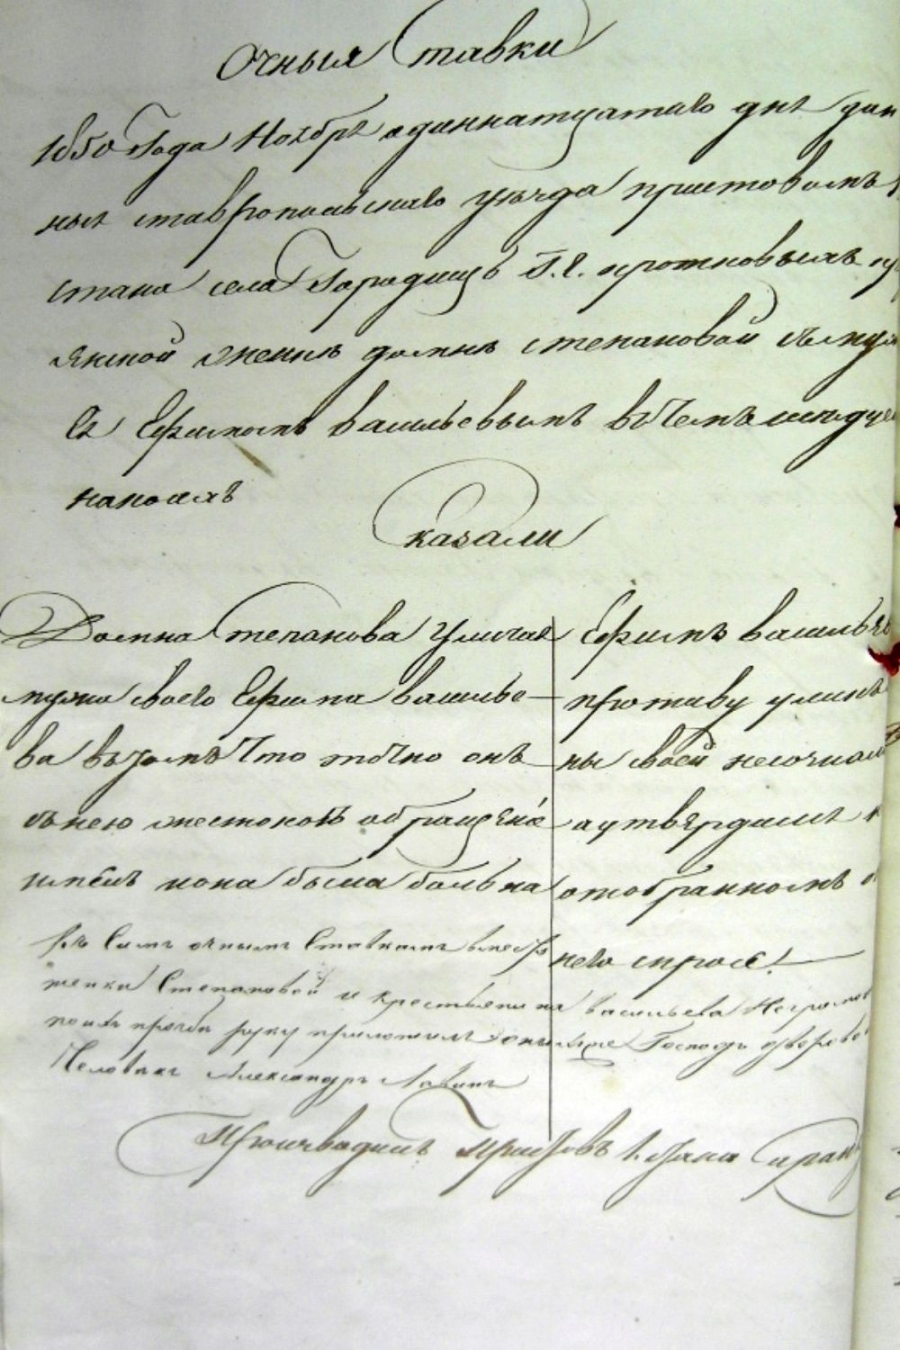 Очныя ставки
1850 Года Ноября одиннатцатаго дня дан
ныя ставропольскаго уезда приставомъ
стана села Городищъ
янской женкѣ домнѣ степановой съ муж
съ Ефимомъ васильевымъ в чемъ
на комъ
казали
Домна Степанова уличая
мужа своего Ефима василье
ва въ томъ что точно онъ
съ нею жестокое обращеніе
имѣлъ и она была больна
Ефимъ василь
противу улик
ны своей
а утвердился
отобранномъ о
него спросе
Къ Симъ очнымъ Ставкамъ вместо
женки Степановой и крестьянина васильева Неграмот
по ихъ прозбѣ руку приложилъ Господъ
Человекъ Александръ
Производилъ Приставъ 1. Стана